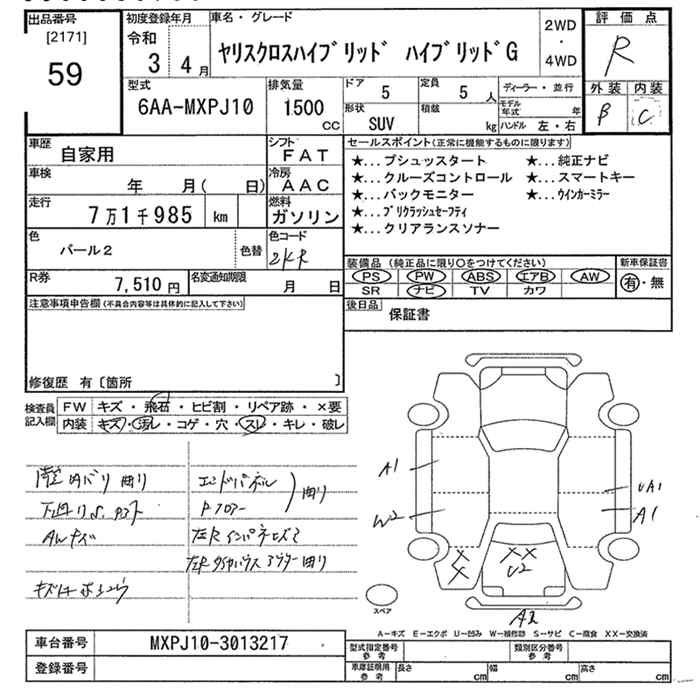 出品番号
[2171]
59
初度登録年月
令和
3 4月
車名・グレード
ヤリスクロスハイブリッド ハイブリッドG
2WD
・
4WD
評価点
R
外装 内装
B C
型式
6AA-MXPJ10
排気量
1500
cc
ドア
5
定員
5 人
形状
SUV
積載
kg
ディーラー・並行
モデル年式 年
ハンドル 左・右
車歴
自家用
シフト
FAT
車検
年 月( 日)
冷房
AAC
走行
7万1千985 km
燃料
ガソリン
色
パール2
色替
色コード
2KR
R券
7,510 円
名変通知期限
月 日
セールスポイント(正常に機能するものに限ります)
★...プシュッスタート ★...純正ナビ
★...クルーズコントロール ★...スマートキー
★...バックモニター ★...ウインカーミラー
★...プリクラッシュセーフティ
★...クリアランスソナー
装備品(純正品に限り○をつけてください) 新車保証書
PS PW ABS エアB AW
SR ナビ TV カワ
有・無
後日品
保証書
注意事項申告欄(不具合内容等は具体的に記入して下さい)
修復歴 有〔箇所 〕
検査員記入欄
FW キズ・飛石・ヒビ割・リペア跡・×要
内装 キズ・汚レ・コゲ・穴・スレ・キレ・破レ
エンドパネル
Rフロアー
曲り
AWキズ
A1
W2
UA1
A1
XX
U2
A2
スペア
A-キズ E-エクボ U-凹み W-補修跡 S-サビ C-腐食 XX-交換済
車台番号 MXPJ10-3013217
登録番号
型式指定番号 参考
類別区分番号 参考
車庫証明用 参考
長さ cm 幅 cm 高さ cm